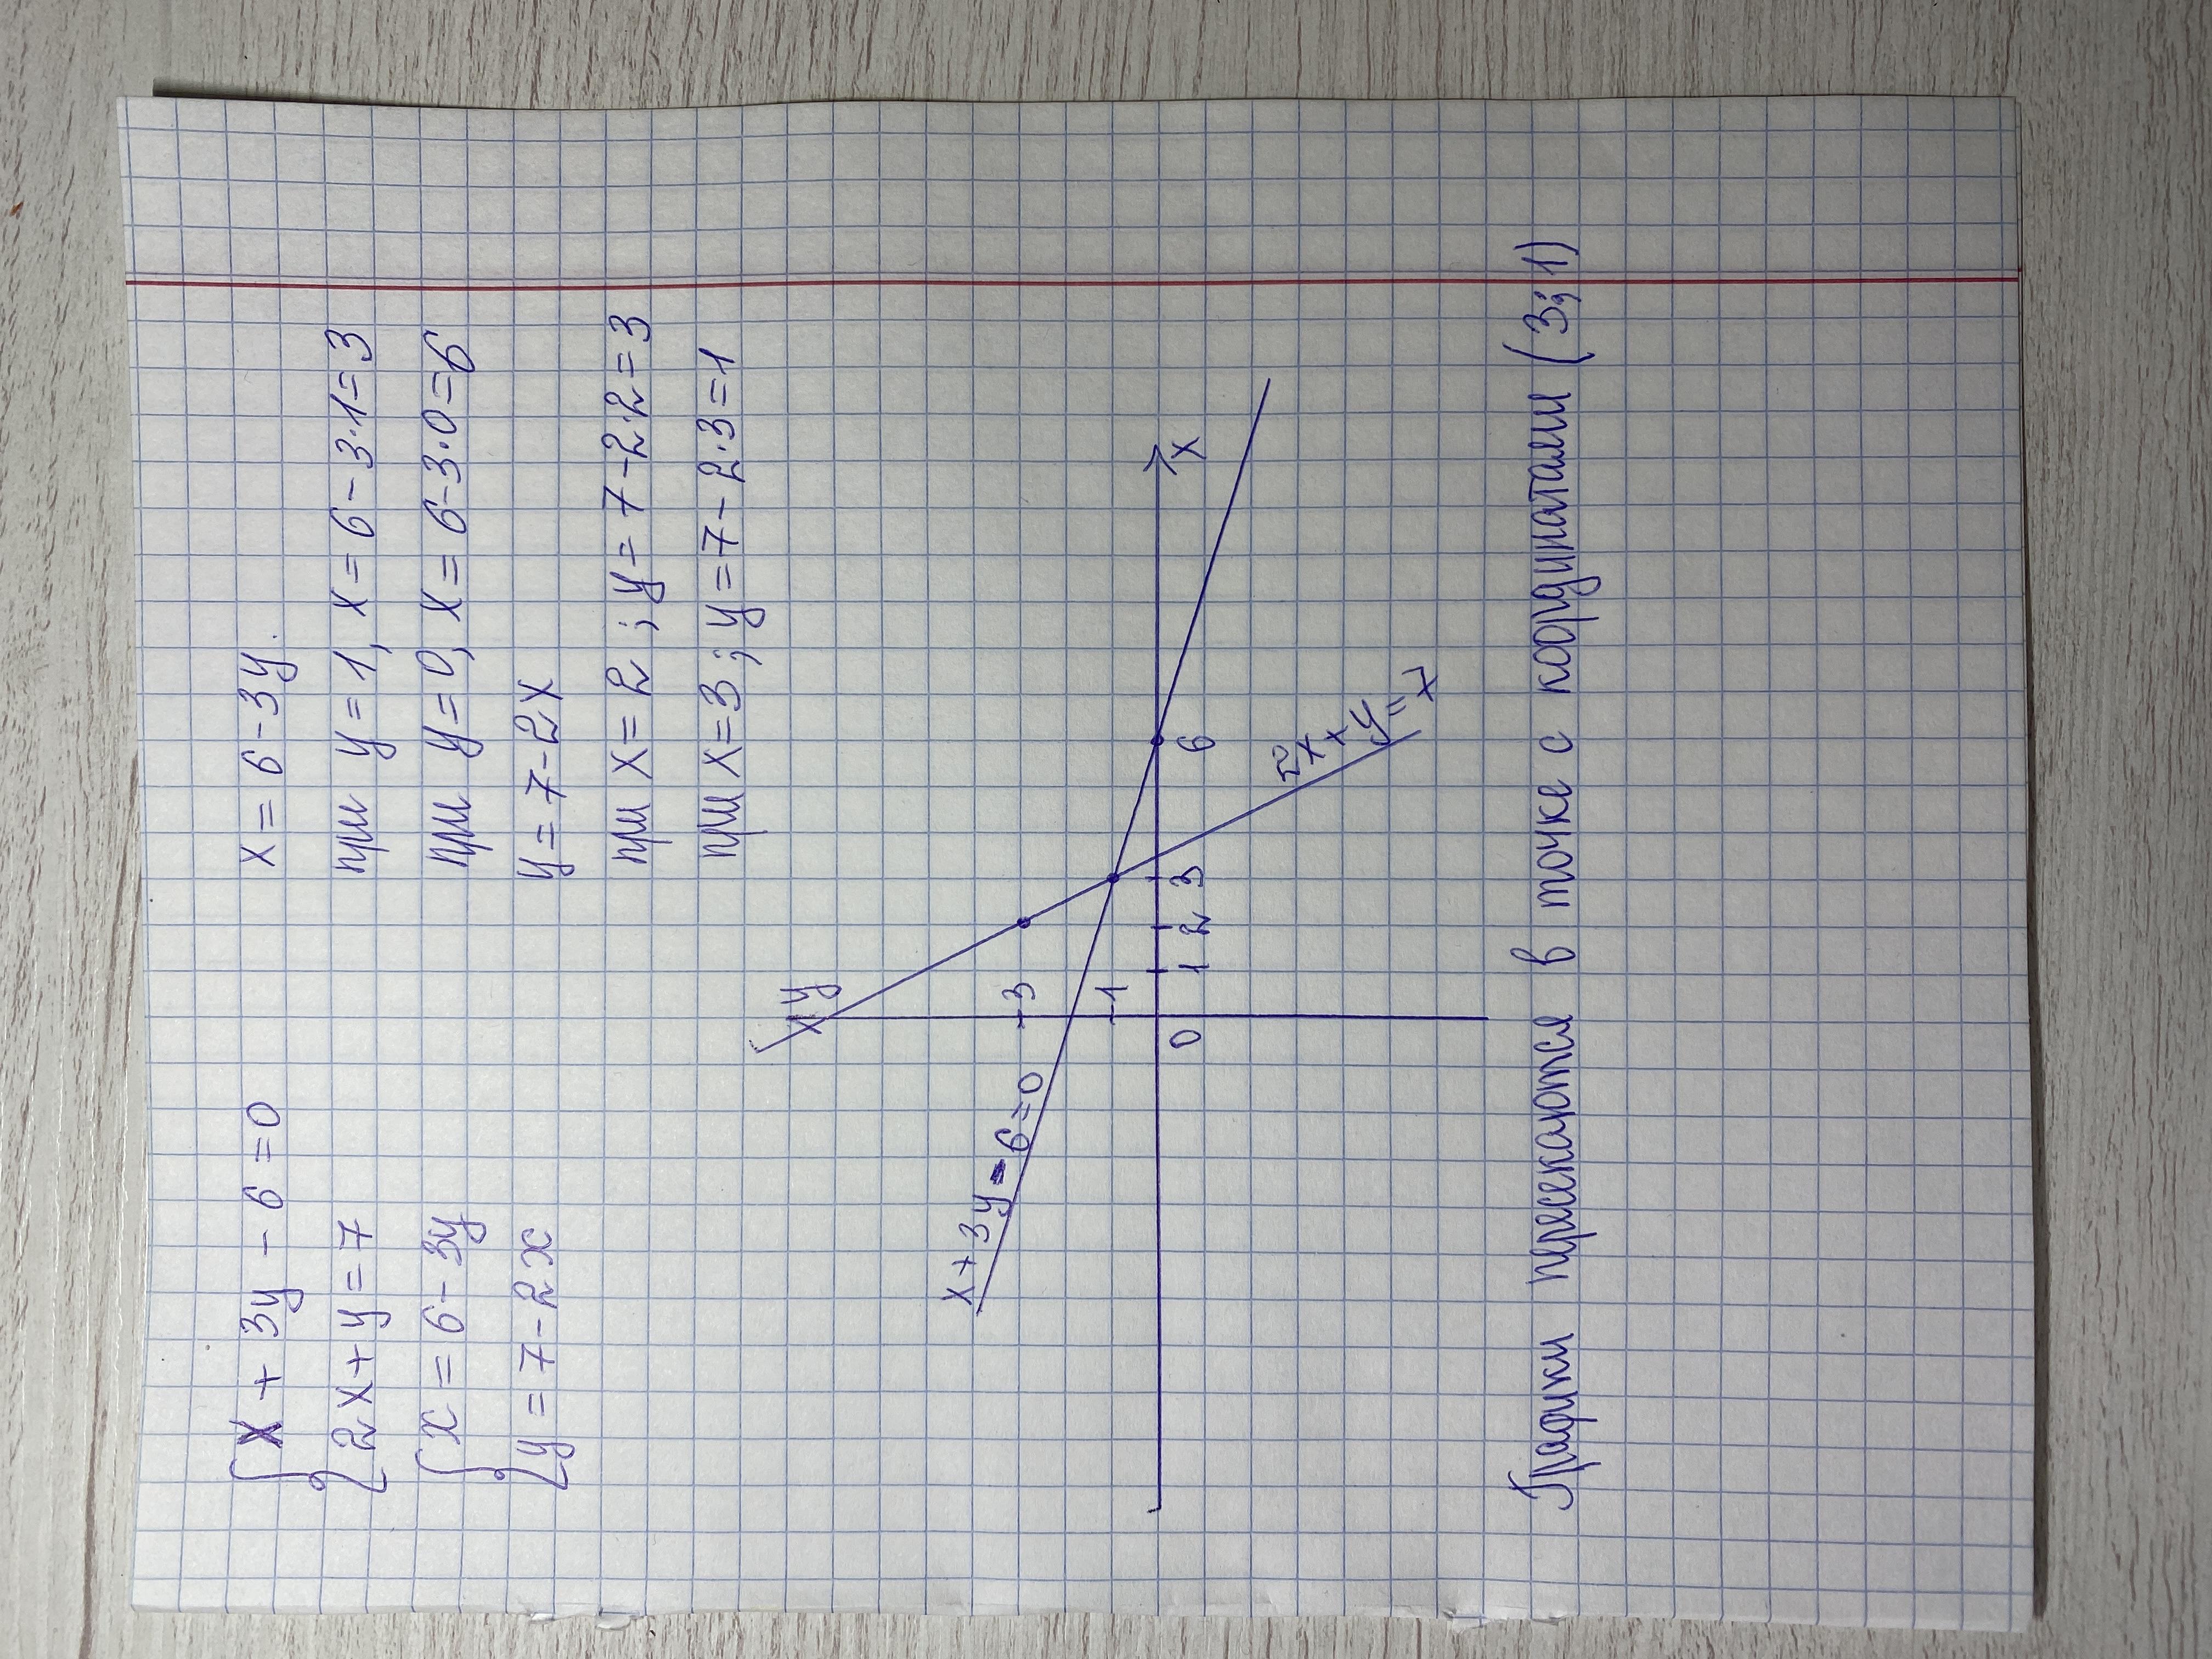 x + 3y - 6 = 0
2x + y = 7
x = 6 - 3y
y = 7 - 2x
x = 6 - 3y.
при y = 1, x = 6 - 3·1 = 3
при y = 0, x = 6 - 3·0 = 6
y = 7 - 2x
при x = 2 ; y = 7 - 2·2 = 3
при x = 3 ; y = 7 - 2·3 = 1
y
x + 3y - 6 = 0
3
1
0 1 2 3 6 x
Графики пересекаются в точке с координатами (3; 1)